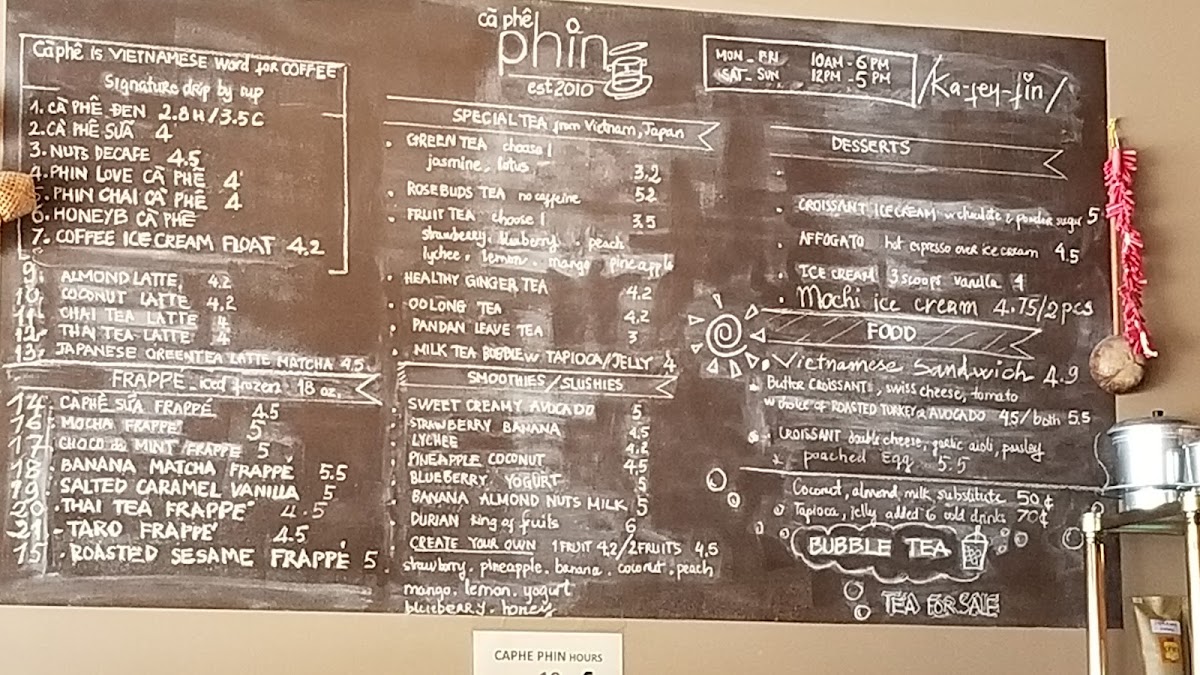 Cà phê is VIETNAMESE word for COFFEE
Signature drip by cup
1. CÀ PHÊ ĐEN 2.8H/3.5C
2. CÀ PHÊ SỮA 4
3. NUTS DECAFE 4.5
4. PHIN LOVE CÀ PHÊ 4
5. PHIN CHAI CÀ PHÊ 4
6. HONEYB CÀ PHÊ
7. COFFEE ICE CREAM FLOAT 4.2
9. ALMOND LATTE 4.2
10. COCONUT LATTE 4.2
11. CHAI TEA LATTE 4
12. THAI TEA LATTE 4
13. JAPANESE GREENTEA LATTE MATCHA 4.5
FRAPPÉ iced frozen 18 oz.
14. CAPHÊ SỮA FRAPPÉ 4.5
16. MOCHA FRAPPÉ 5
17. CHOCO MINT FRAPPE 5
18. BANANA MATCHA FRAPPÉ 5.5
19. SALTED CARAMEL VANILLA 5
20. THAI TEA FRAPPÉ 4.5
21 - TARO FRAPPÉ 4.5
15. ROASTED SESAME FRAPPÉ 5
cà phê
phin
est 2010
SPECIAL TEA from Vietnam, Japan
GREEN TEA choose 1
jasmine, lotus 3.2
ROSEBUDS TEA no caffeine 5.2
FRUIT TEA choose 1 3.5
strawberry. blueberry. peach
lychee. lemon. mango. pineapple
HEALTHY GINGER TEA 4.2
OOLONG TEA 4.2
PANDAN LEAVE TEA 3
MILK TEA BUBBLE w TAPIOCA/JELLY 4
SMOOTHIES/SLUSHIES
SWEET CREAMY AVOCADO 5
STRAWBERRY BANANA 4.5
LYCHEE 4.2
PINEAPPLE COCONUT 4.5
BLUEBERRY YOGURT 5
BANANA ALMOND NUTS MILK 5
DURIAN king of fruits 6
CREATE YOUR OWN 1 FRUIT 4.2/2 FRUITS 4.5
strawberry. pineapple. banana. coconut. peach
mango. lemon. yogurt
blueberry. honey
MON - FRI 10AM - 6PM
SAT - SUN 12PM - 5PM
/Ka-fey-fin/
DESSERTS
CROISSANT ICE CREAM w chocolate & powder sugar 5
AFFOGATO hot espresso over ice cream 4.5
ICE CREAM 3 scoops vanilla 4
Mochi ice cream 4.75/2pcs
FOOD
Vietnamese Sandwich 4.9
Butter CROISSANT, swiss cheese, tomato
w choice of ROASTED TURKEY or AVOCADO 4.5/both 5.5
CROISSANT double cheese, garlic aioli, parsley
poached Egg 5.5
Coconut, almond milk substitute 50¢
Tapioca, jelly added to cold drinks 70¢
BUBBLE TEA
TEA FOR SALE
CAPHE PHIN HOURS